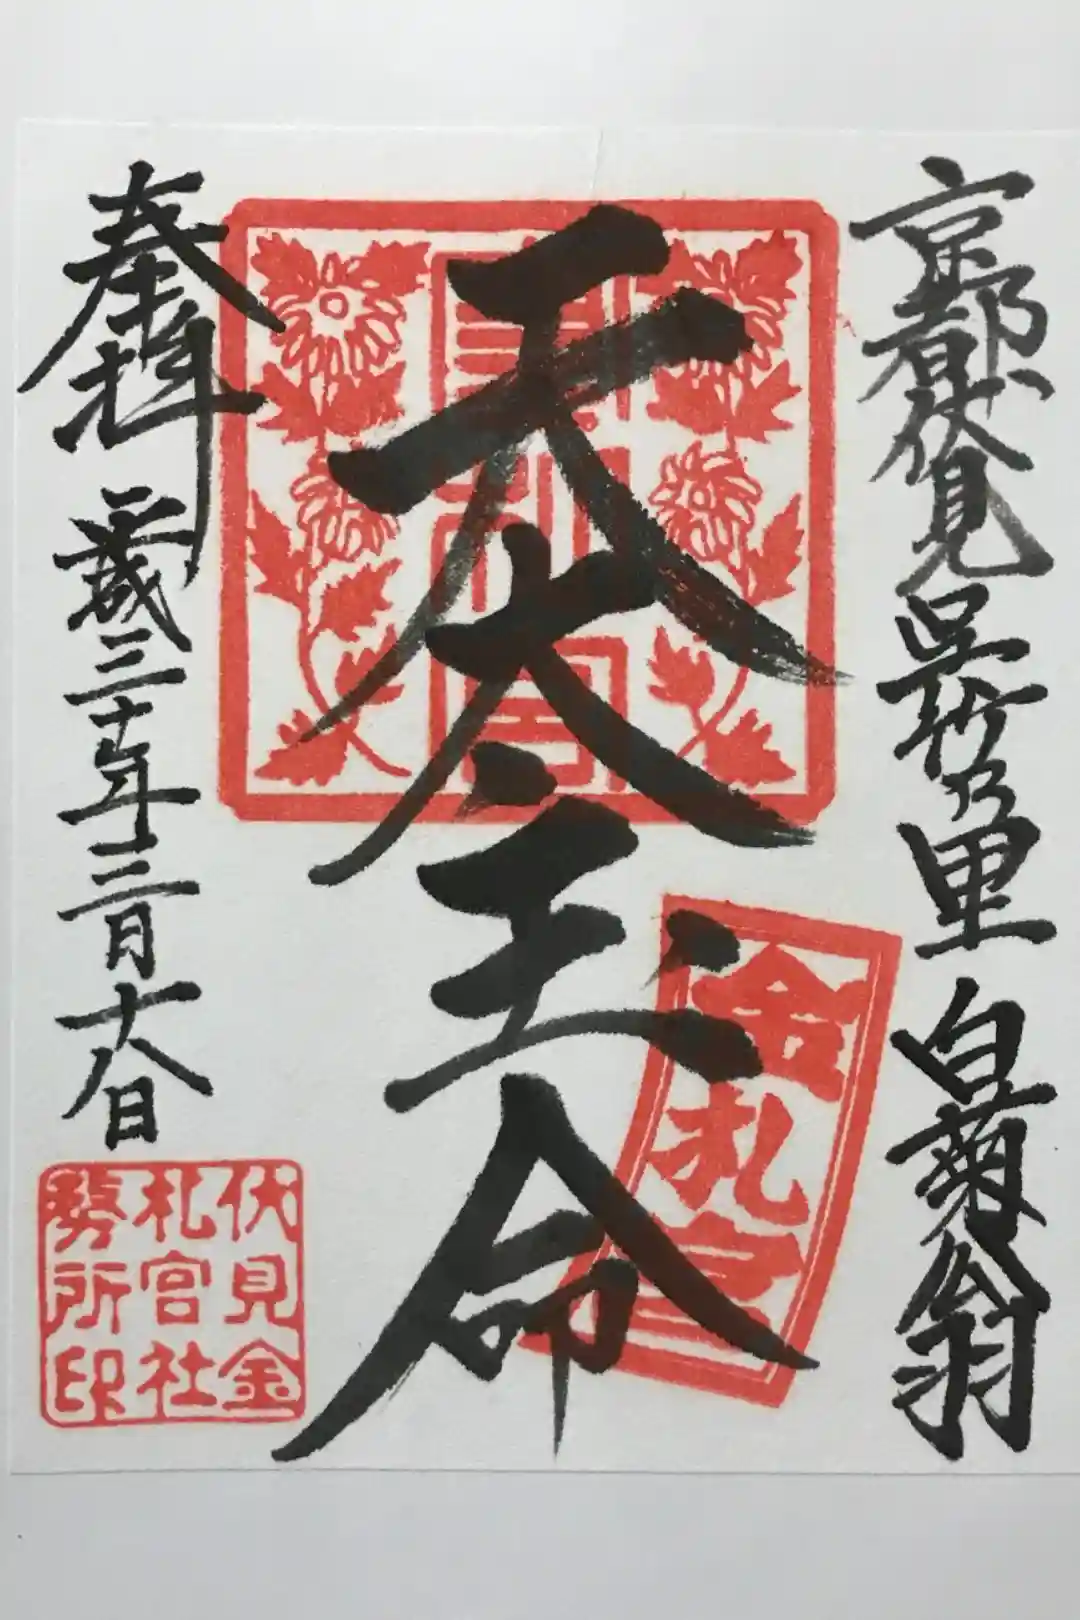 京都伏見呉竹乃里 白菊翁
天太玉命
金札宮
奉拝 平成三十年三月十八日
伏見金
札宮社
務所印